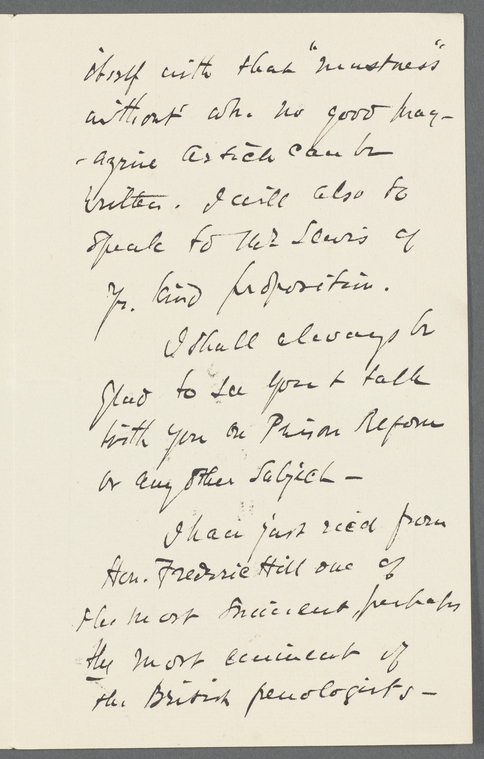 itself with that "mustness"
without wh. no good mag-
-azine article can be
written. I will also to
speak to Mr Lewis of
yr. kind proposition.
I shall always be
glad to see you & talk
with you on Prison Reform
or any other Subject —
I have just rec'd from
Hon. Frederic Hill one of
the most eminent, perhaps
the most eminent of
the British penologists —